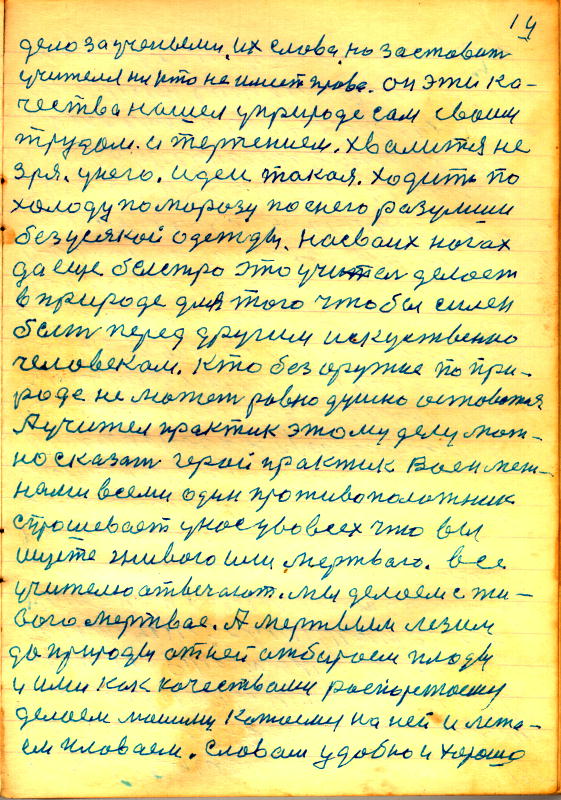 14
дело за ученьеми. их слова. но заставит
учителя никто не имеет права. он эти ка-
чества нашел у природе сам своим
трудом. и терпением. хвалится не
зря. у него. идеи такая. ходить по
холоду по морозу по снего разумши
без усякой одежды. на своих ногах
да еще быстро это учител делает
в природе для того чтобы силен
быт перед другим искуственно
человекам. кто без оружие по при-
роде не может равнодушно оставатя
А учител практик этому делу мож-
но сказат герой практик Воен меж-
нами всеми один противоположник
спрошевает у нас увовсех что вы
ищете живого или мертваго. все
учителю отвечают. мы делаем с жи-
вого мертвае. А мертвым лезим
до природы от ней отбираем плоды
и ими как качествами
делаем машину катаему на ней и лета-
ем плаваем. словам удобно и хорошо